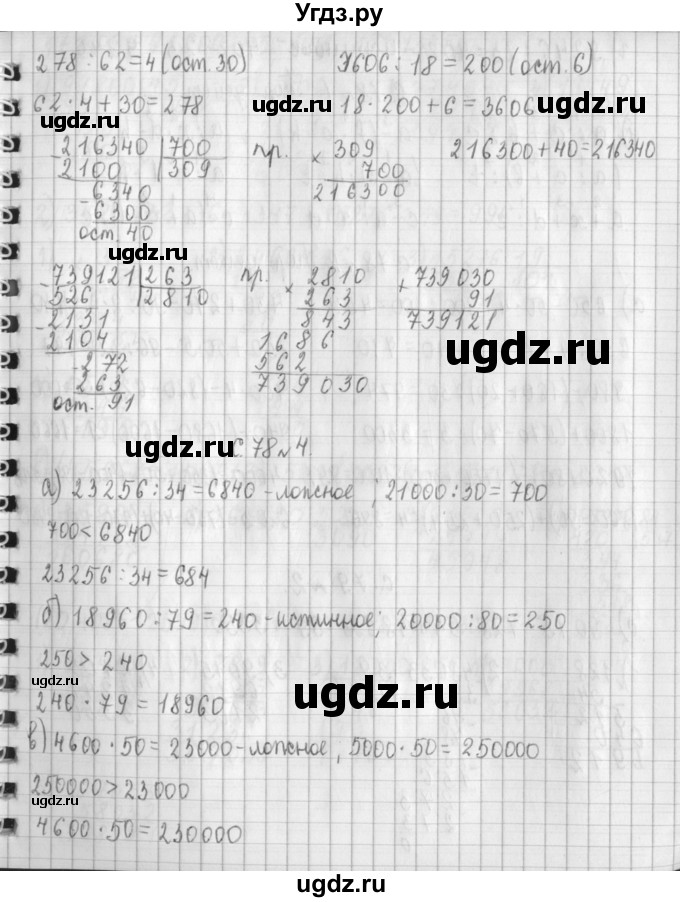 Угдз.ру
278 : 62 = 4 (ост. 30) 3606 : 18 = 200 (ост. 6)
62 · 4 + 30 = 278 18 · 200 + 6 = 3606
ugdz.ru ugdz.ru
- 216340 | 700 пр. × 309 216300 + 40 = 216340
2100 | 309 700
- 6340 216300
6300
ост. 40
ugdz.ru
- 739121 | 263 пр. × 2810 + 739 030
526 | 2810 263 91
- 2131 843 739121
2104 1686
- 272 562
263 739030
ост. 91
ugdz.ru
ugdz.ru
С. 78 № 4.
ugdz.ru
а) 23256 : 34 = 6840 - ложное ; 21000 : 30 = 700
700 < 6840
23256 : 34 = 684
б) 18960 : 79 = 240 - истинное; 20000 : 80 = 250
ugdz.ru
250 > 240
ugdz.ru
240 · 79 = 18960
ugdz.ru
в) 4600 · 50 = 23000 - ложное, 5000 · 50 = 250000
250000 > 23000
ugdz.ru
4600 · 50 = 230000
ugdz.ru
ugdz.ru